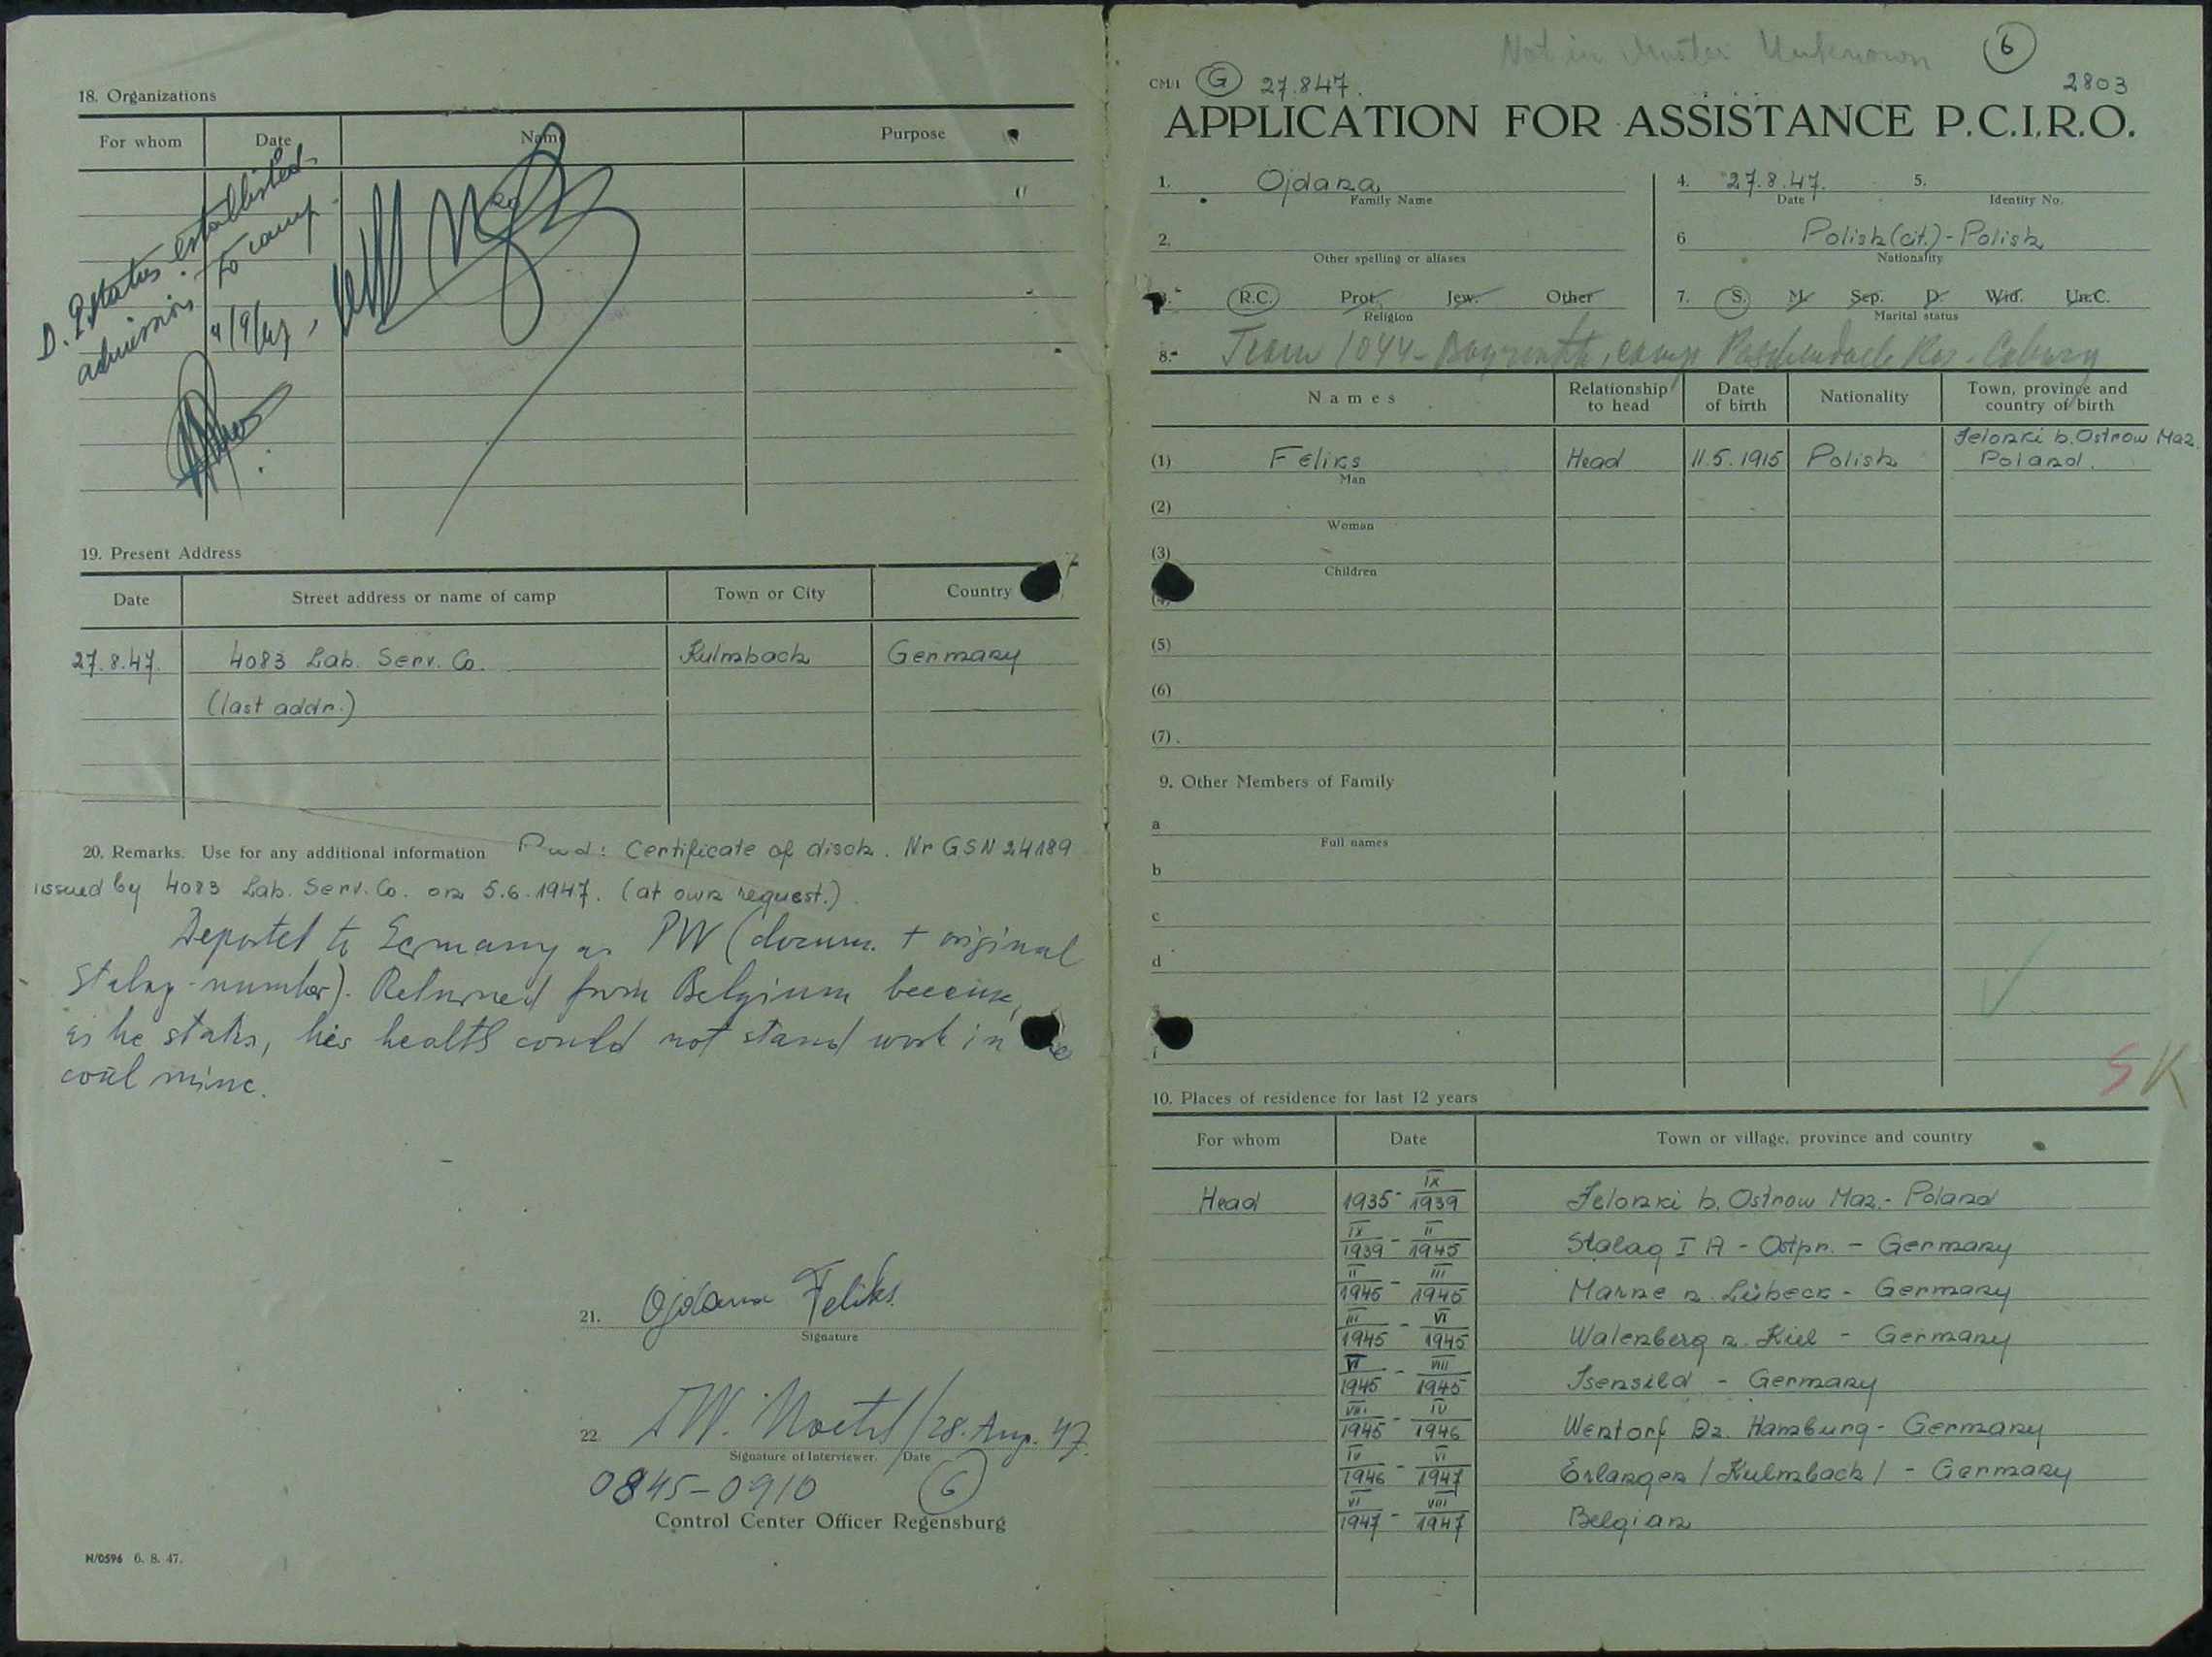 18. Organizations
For whom Date Name Purpose
D.P. Status established
admission to camp
4/9/47,
19. Present Address
Date Street address or name of camp Town or City Country
27.8.47. 4083 Lab. Serv. Co. Kulmbach Germany
(last addr.)
20. Remarks. Use for any additional information Prod: Certificate of disch. Nr GSN 24189
issued by 4083 Lab. Serv. Co. on 5.6.1947. (at own request.)
Deported to Germany as PW (docum. + original
Stalag number). Returned from Belgium because,
as he states, his health could not stand work in the
coal mine.
21. Ojdana Feliks
Signature
22. /28. Aug. 47.
Signature of Interviewer. Date
0845-0910 6
Control Center Officer Regensburg
N/0596 6. 8. 47.
Not in Master Unknown 6
CM/1 G 27.847. 2803
APPLICATION FOR ASSISTANCE P.C.I.R.O.
1. Ojdana 4. 27.8.47. 5.
Family Name Date Identity No.
2. 6 Polish (cit.) - Polish
Other spelling or aliases Nationality
R.C. Prot. Jew. Other 7. S. M. Sep. D. Wid. Un.C.
Religion Marital status
8. Team 1044 - Bayreuth, camp Coburg
Names Relationship to head Date of birth Nationality Town, province and country of birth
Jelonki b. Ostrow Maz.
(1) Feliks Head 11.5.1915 Polish Poland.
Man
(2)
Woman
(3)
Children
(4)
(5)
(6)
(7).
9. Other Members of Family
a
Full names
b
c
d
SK
10. Places of residence for last 12 years
For whom Date Town or village, province and country
Head 1935 - IX 1939 Jelonki b. Ostrow Maz. - Poland
IX 1939 - II 1945 Stalag I A - Ostpr. - Germany
II 1945 - III 1945 Marne n. Lübeck - Germany
III 1945 - VI 1945 Walenberg n. Kiel - Germany
VI 1945 - VIII 1945 Isensild - Germany
VIII 1945 - IV 1946 Wentorf Hamburg - Germany
IV 1946 - VI 1947 Erlangen /Kulmbach/ - Germany
VI 1947 - VIII 1947 Belgian